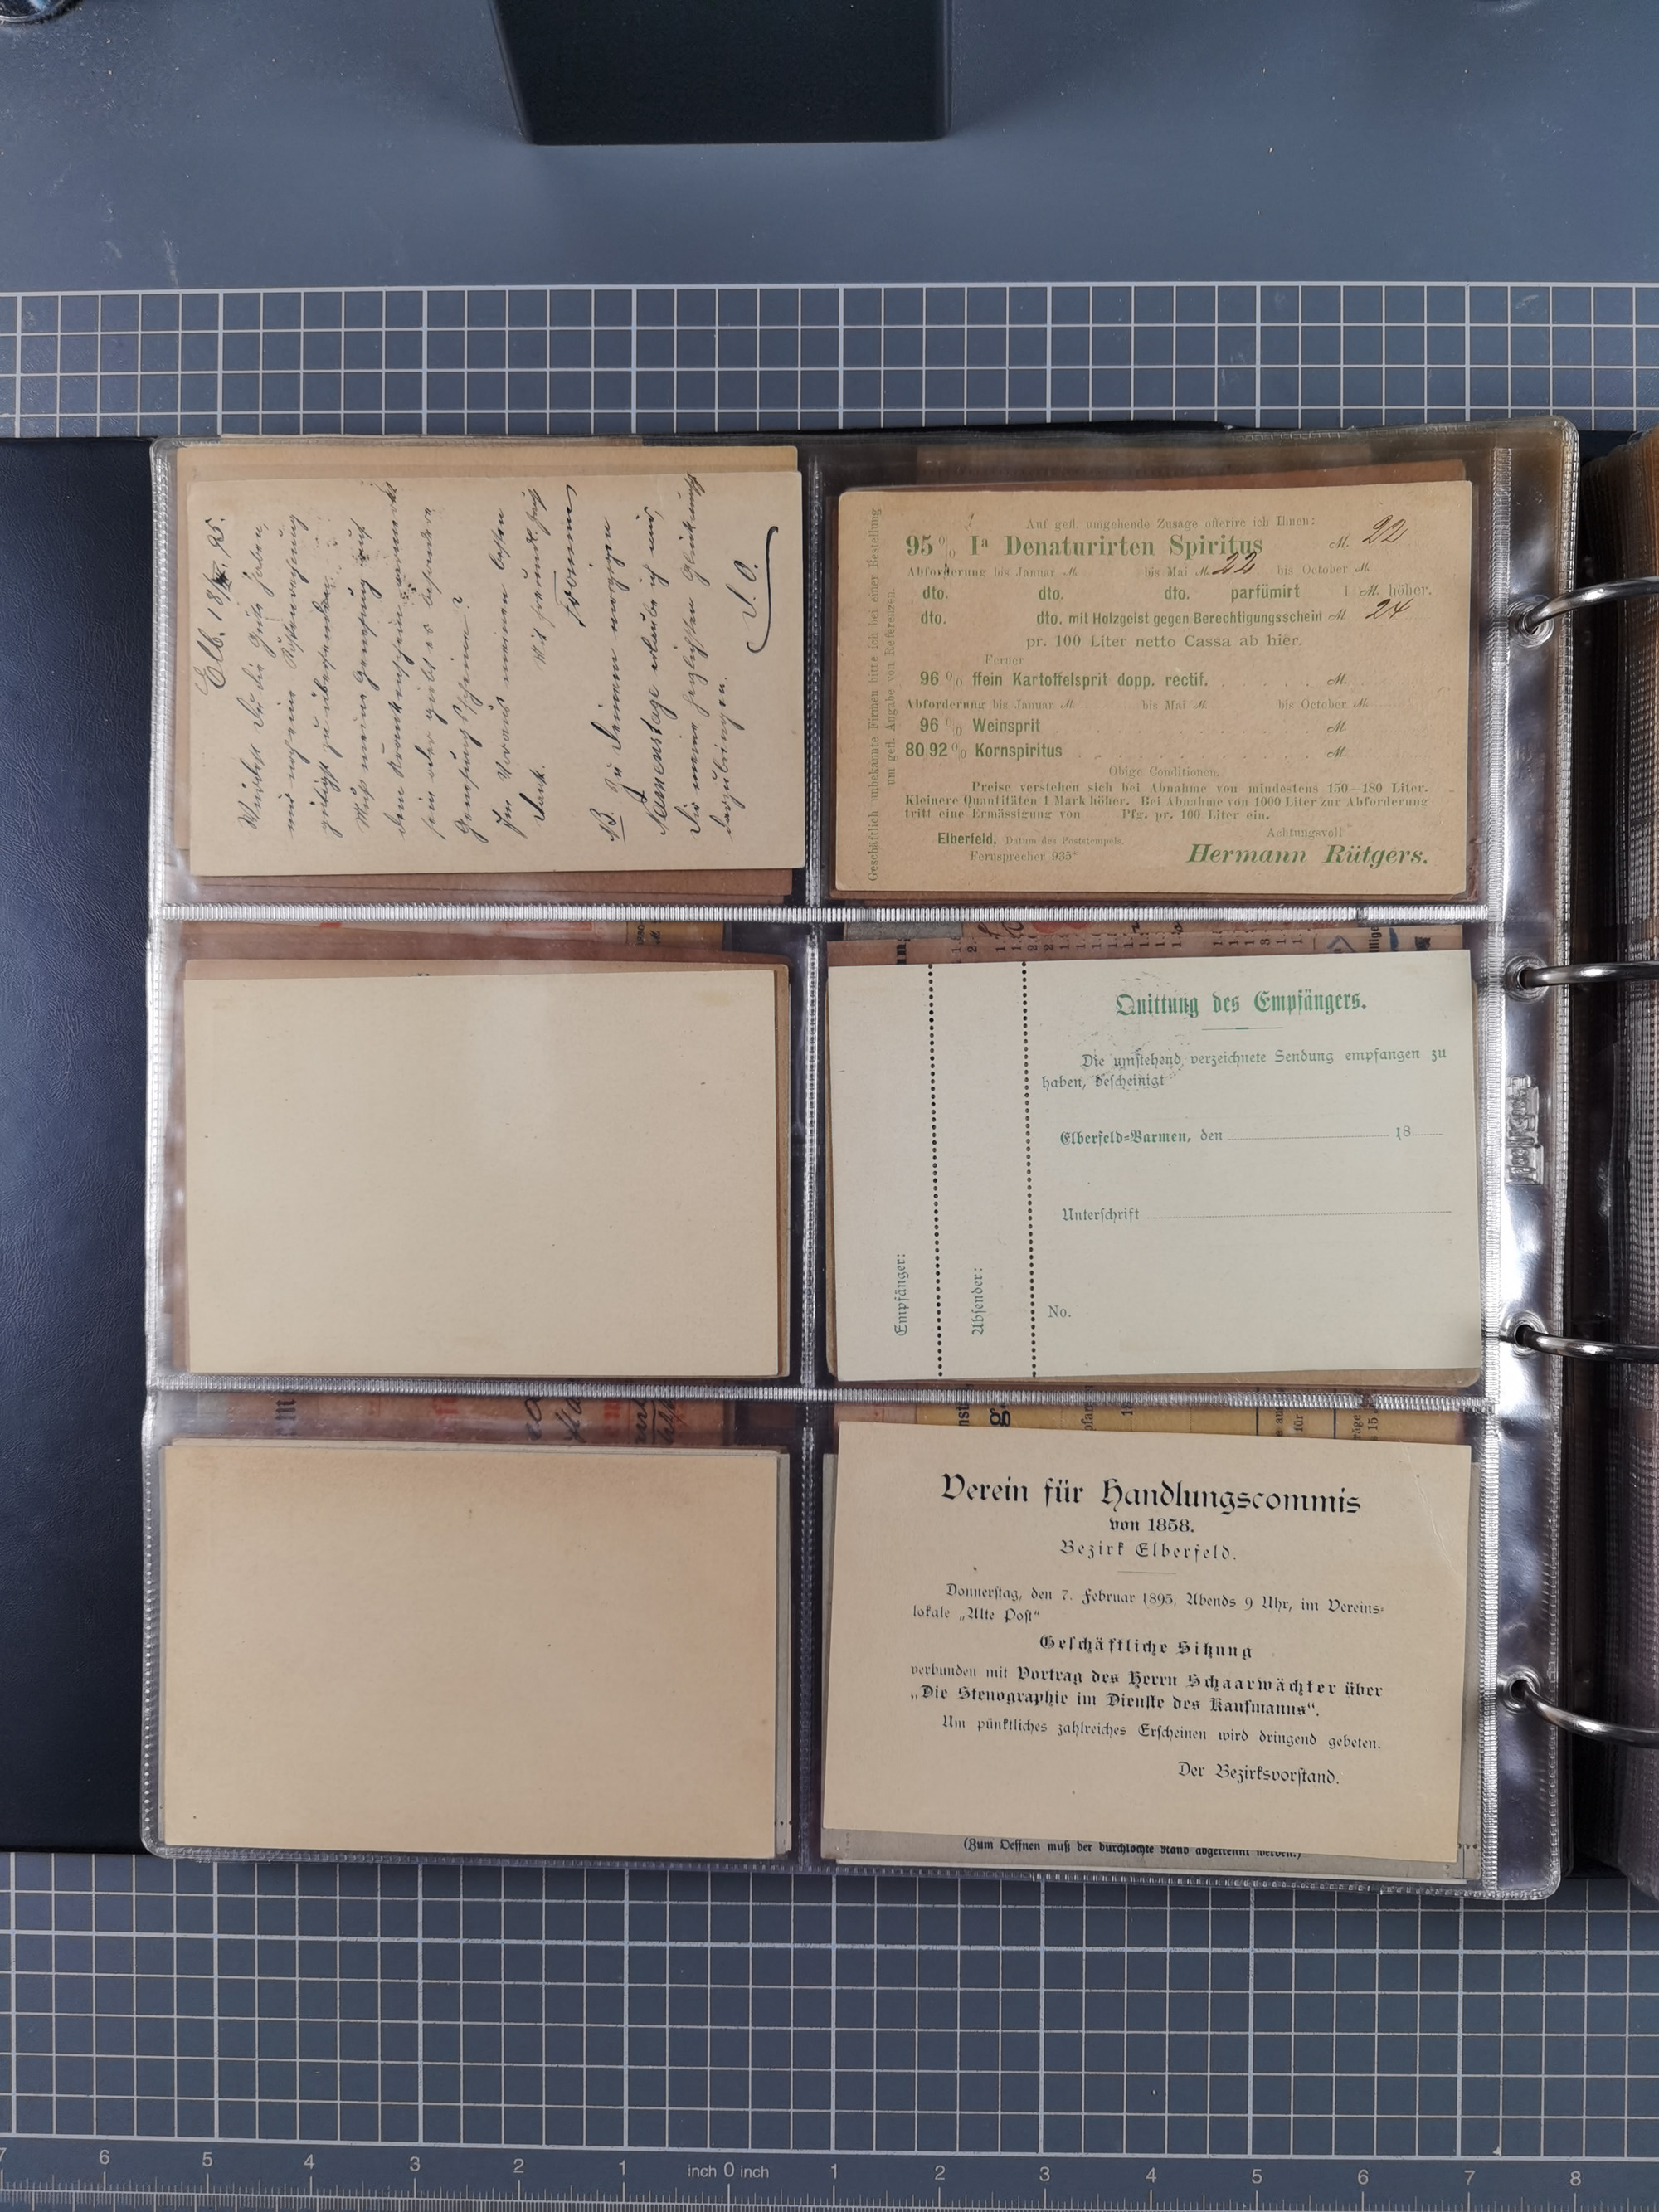 Elb. 18/IV. 95.
Würdest Du die Güte haben,
mir noch ein
gütigst zu übersenden.
Muß meine Genesung auf
dem Krankenschein vermerkt
sein oder gibt es besondere
Genesungsscheine?
Im Voraus meinen besten
Dank.
Mit freundl. Gruß
NB. Zu Deinem morgigen
Namenstage erlaube ich mir,
Dir meine herzlichsten Glückwünsche
darzubringen.
D. O.
Geschäftlich unbekannte Firmen bitte ich bei einer Bestellung
um gefl. Angabe von Referenzen.
Auf gefl. umgehende Zusage offerire ich Ihnen:
95% Ia Denaturirten Spiritus M. 22
Abforderung bis Januar M. bis Mai M. 22 bis October M.
dto. dto. dto. parfümirt 1 M. höher.
dto. dto. mit Holzgeist gegen Berechtigungsschein M 24
pr. 100 Liter netto Cassa ab hier.
Ferner
96 % ffein Kartoffelsprit dopp. rectif. . . . . . M.
Abforderung bis Januar M. bis Mai M. bis October M.
96 % Weinsprit . . . . . . M.
80/92 % Kornspiritus . . . . . . M.
Obige Conditionen.
Preise verstehen sich bei Abnahme von mindestens 150—180 Liter.
Kleinere Quantitäten 1 Mark höher. Bei Abnahme von 1000 Liter zur Abforderung
tritt eine Ermässigung von Pfg. pr. 100 Liter ein.
Elberfeld, Datum des Poststempels.
Fernsprecher 935
Achtungsvoll
Hermann Rütgers.
Empfänger:
Absender:
Quittung des Empfängers.
Die umstehend verzeichnete Sendung empfangen zu
haben, bescheinigt
Elberfeld-Barmen, den 18
Unterschrift
No.
Verein für Handlungscommis
von 1858.
Bezirk Elberfeld.
Donnerstag, den 7. Februar 1895, Abends 9 Uhr, im Vereins-
lokale „Alte Post“
Geschäftliche Sitzung
verbunden mit Vortrag des Herrn Schaarwächter über
„Die Stenographie im Dienste des Kaufmanns“.
Um pünktliches zahlreiches Erscheinen wird dringend gebeten.
Der Bezirksvorstand.
(Zum Oeffnen muß der durchlochte Rand abgetrennt werden.)
7 6 5 4 3 2 1 inch 0 inch 1 2 3 4 5 6 7 8